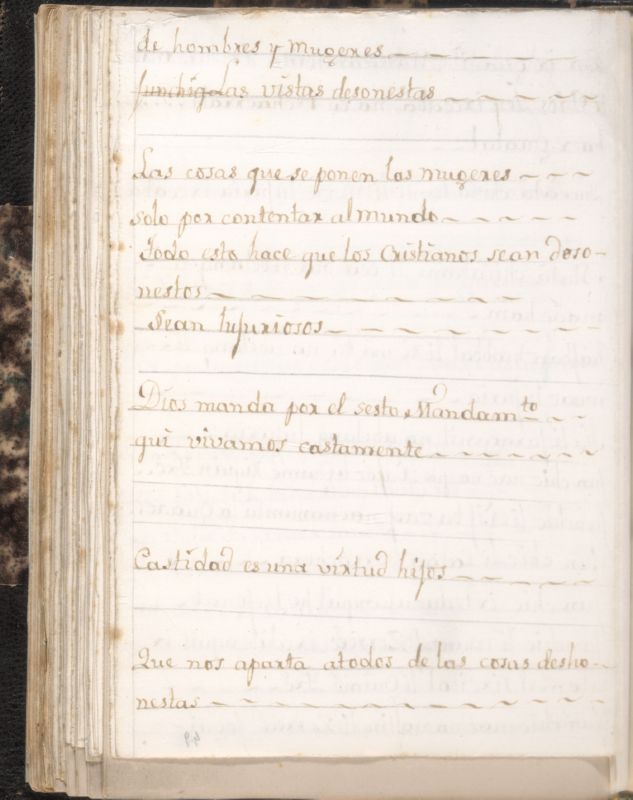 de hombres y mugeres
Las vistas desonestas
Las cosas que se ponen las mugeres
solo por contentar al mundo
Todo esto hace que los Cristianos sean deso-
nestos
Sean lujuriosos
Dios manda por el sesto Mandamto
qui vivamos castamente
Castidad es una virtud hijos
Que nos aparta atodos de las cosas desho-
nestas
49